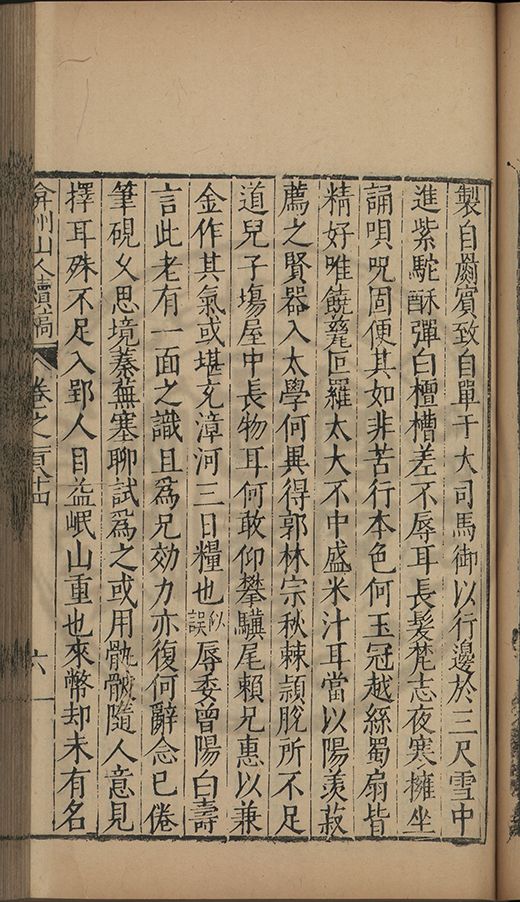 製自罽賓致自單于大司馬御以行邊於三尺雪中
進紫駝酥彈白檀槽差不辱耳長髮梵志夜寒擁坐
誦唄呪固便其如非苦行本色何玉冠越絲蜀扇皆
精好唯饒甆叵羅太大不中盛米汁耳當以陽羡菽
薦之賢器入太學何異得郭林宗秋棘頴脫所不足
道兒子塲屋中長物耳何敢仰攀驥尾賴兄惠以兼
金作其氣或堪充漳河三日糧也似誤辱委曾陽白壽
言此老有一面之識且爲兄効力亦復何辭念已倦
筆硯乆思境蓁蕪塞聊試爲之或用骫骳隨人意見
擇耳殊不足入郢人目盖岷山重也來幣却未有名
弇州山人續稿 卷之 六